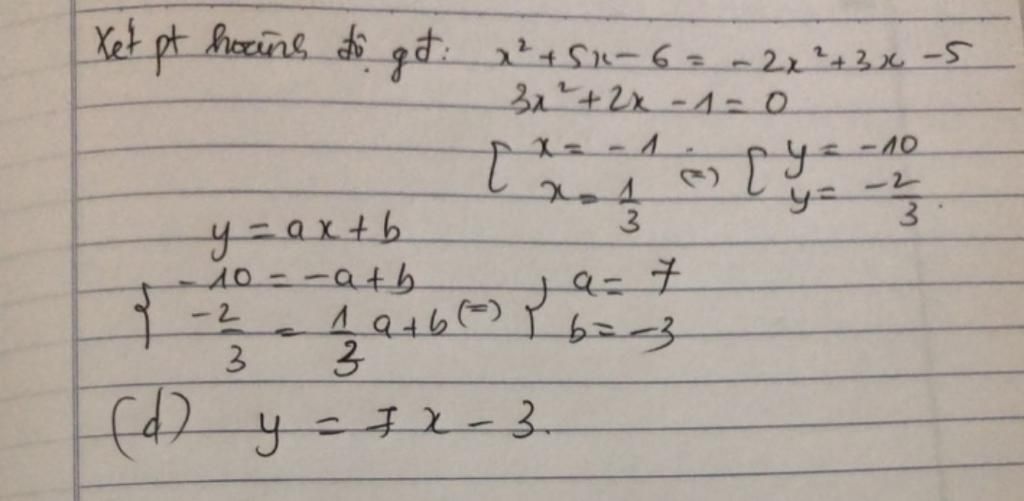 Xét pt hoành độ gđ: x² + 5x - 6 = -2x² + 3x - 5
3x² + 2x - 1 = 0
[ x = -1 (=) [ y = -10
x = 1/3 y = -2/3.
y = ax + b
{ -10 = -a + b (=) { a = 7
-2/3 = 1/3 a + b b = -3
(d) y = 7x - 3.